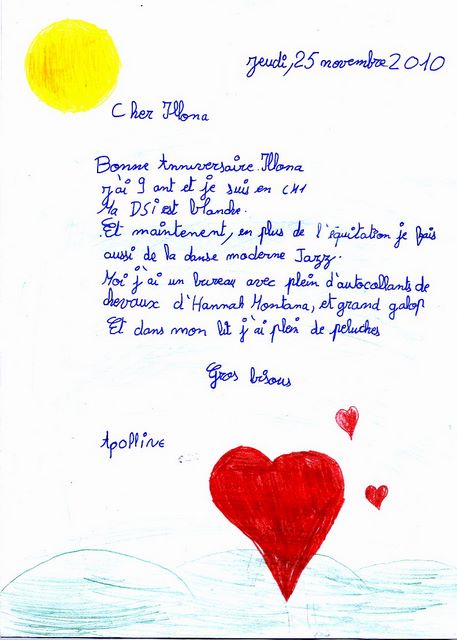 jeudi, 25 novembre 2010
Cher Illona
Bonne Anniversaire Illona
j'ai 9 ant et je suis en CM1
Ma DSi est blanche.
Et maintenent, en plus de l'équitation je fais
aussi de la danse moderne Jazz.
Moi j'ai un bureau avec plein d'autocollants de
chevaux d'Hannah Montana, et grand galop
Et dans mon lit j'ai plein de peluches
Gros bisous
Apolline